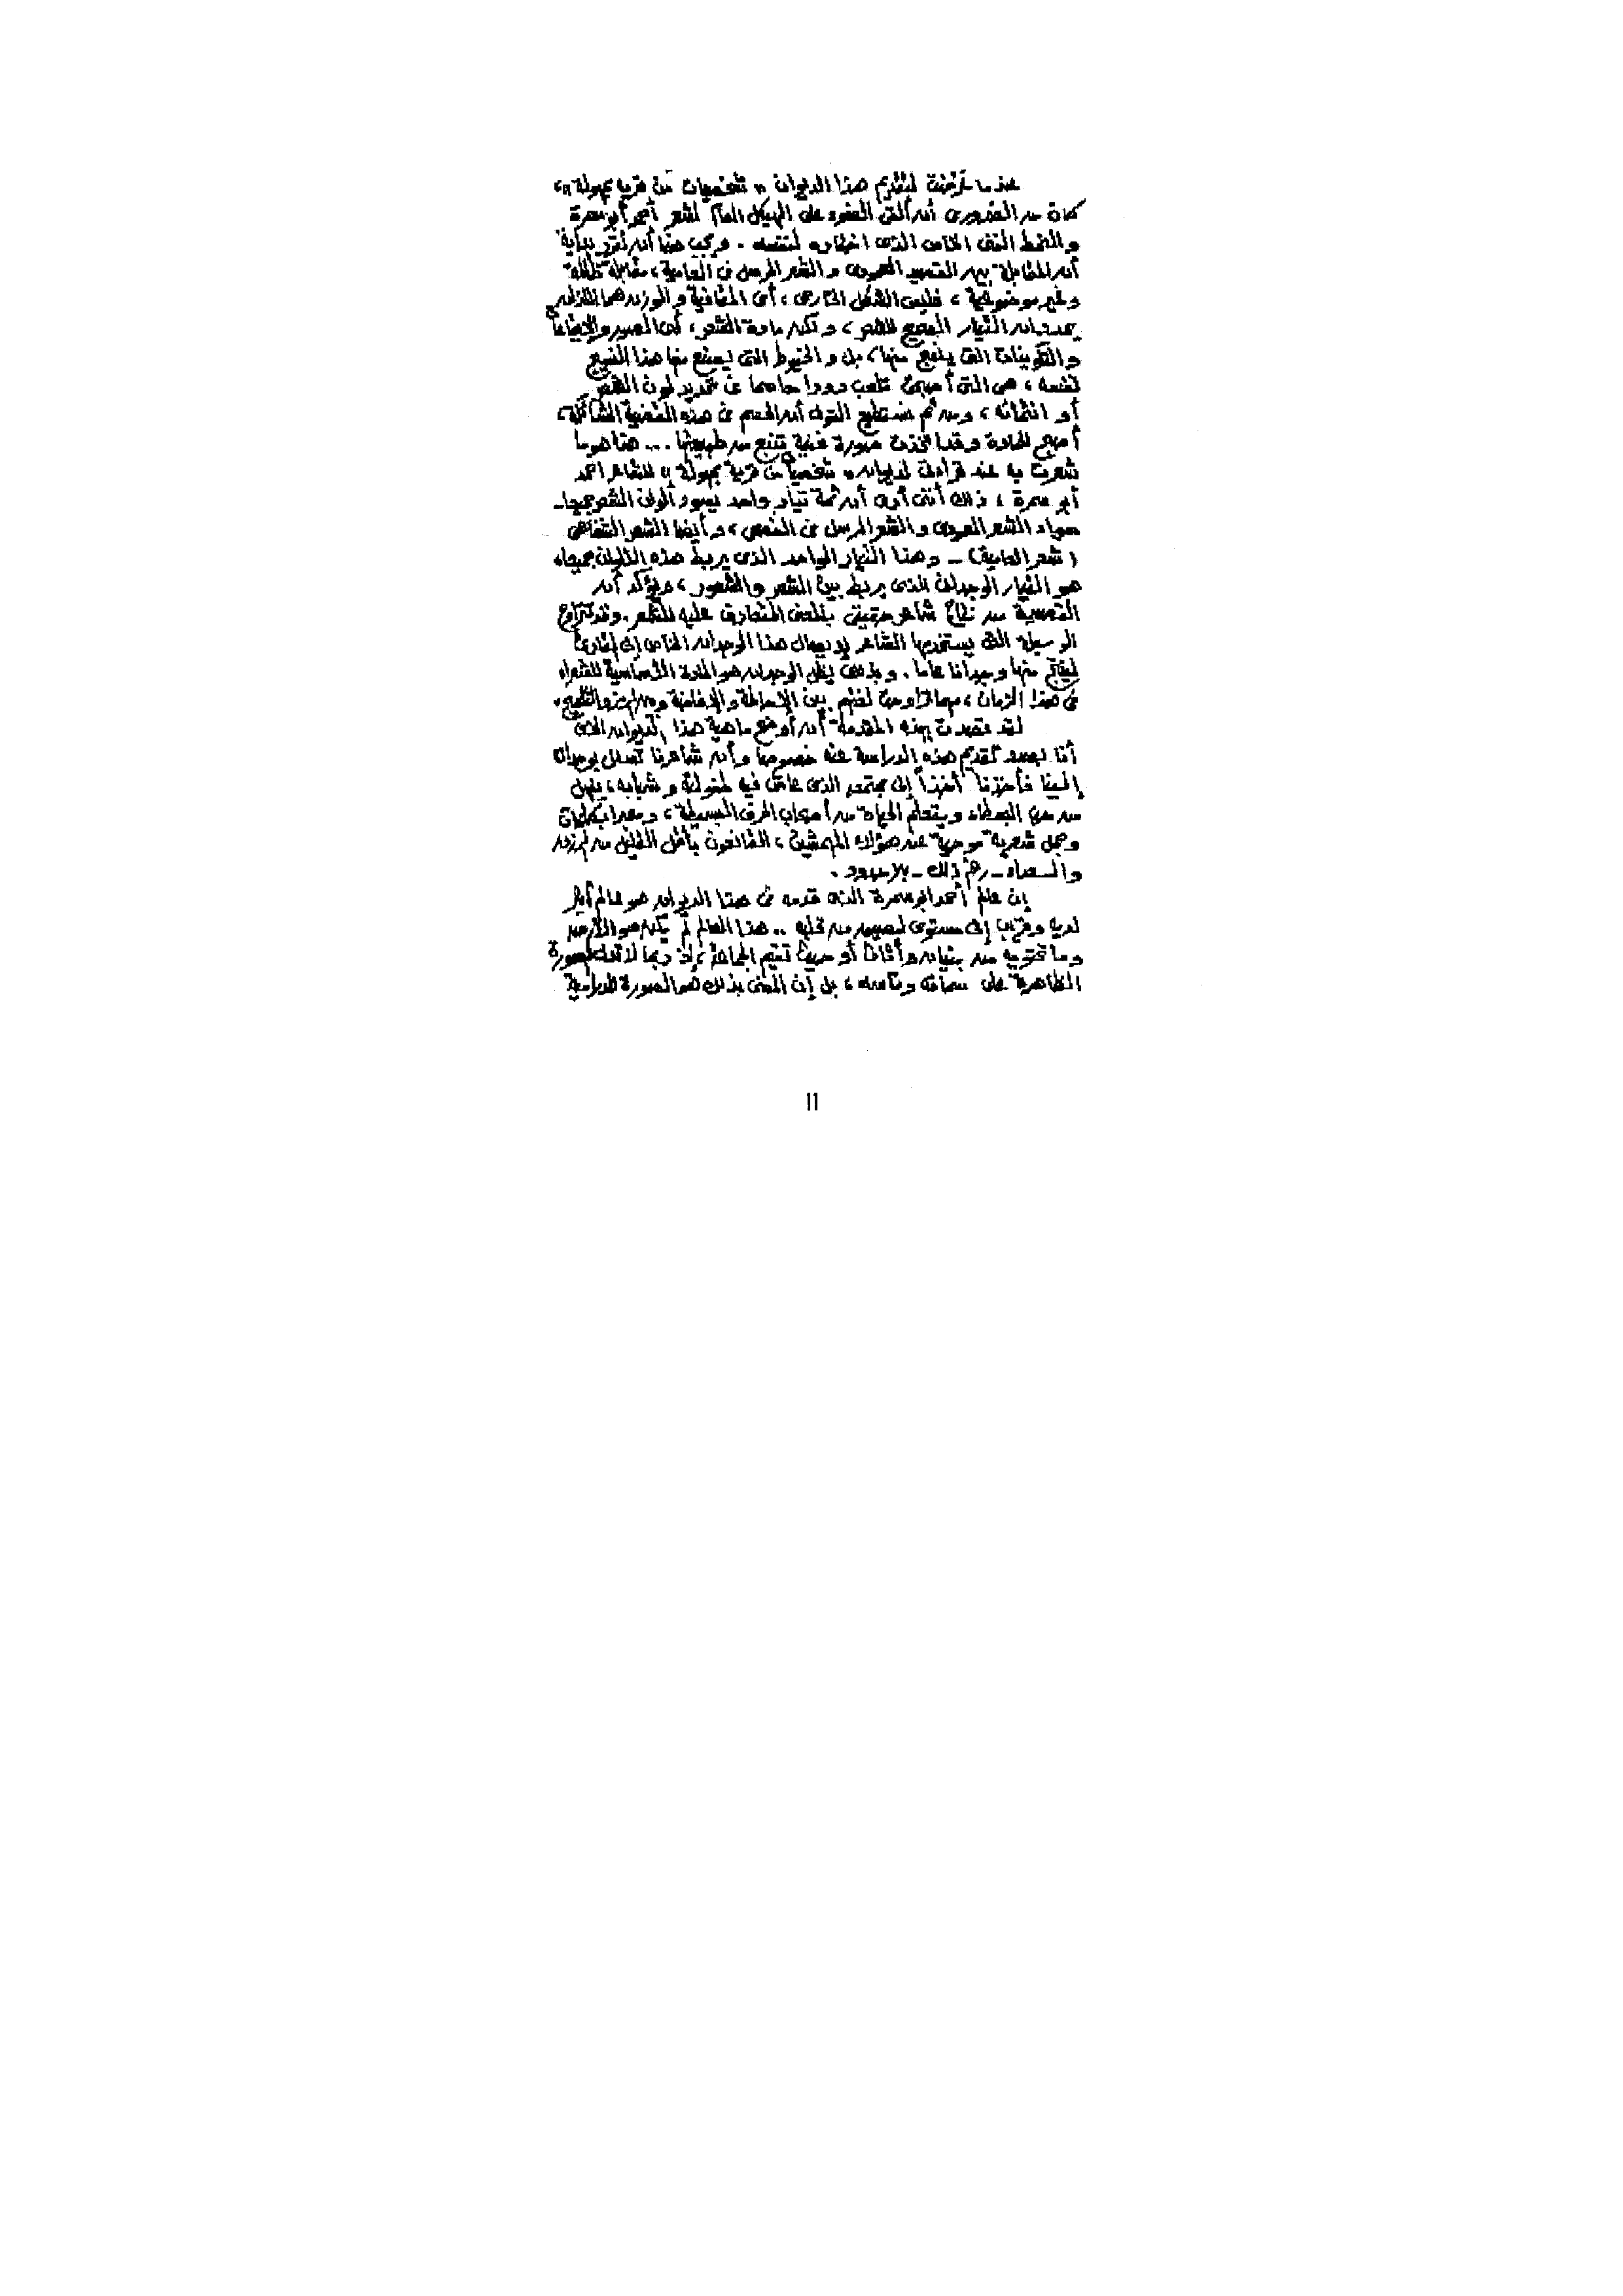 عندما عرضت لتقديم هذا الديوان « شخصيات من قرية مجهولة »،
كان من الضرورى أن ألقى الضوء على الهيكل العام لشعر أحمد أبو سمرة
والنمط الفنى الخاص الذى اختاره لنفسه . ويجب هنا أن أقرر بداية
أن المقابلة بين القصيد العمودى والشعر المرسل فى العامية ، مقابلة ظالمة
وغير موضوعية ، فليس الشكل الخارجى ، أى القافية والوزن هما اللذان
يحددان التيار الصحيح للشعر ، ولكن مادة الشعر ، أى الصور والإيقاعات
والتكوينات التى ينسج منها ، بل والخيوط التى يصنع منها هذا النسيج
نفسه ، هى التى أصبحت تلعب دورا حاسما فى تحديد لون الشعر
أو انتمائه ، ومن ثم نستطيع القول أن الحسم فى هذه القضية الشائكة ،
أصبح للمادة وقد اتخذت صورة فنية تنبع من طبيعتها ... هذا هو ما
شعرت به عند قراءتى لديوان « شخصيات من قرية مجهولة » للشاعر أحمد
أبو سمرة ، ذلك أننى أرى أن ثمة تيار واحد يسود ألوان الشعر جميعا ــ
سواء الشعر العمودى والشعر المرسل فى الفصحى ، وأيضا الشعر
( شعر العامية ) ــ وهذا التيار الواحد الذى يربط هذه الألوان جميعا ،
هو التيار الوجدانى الذى يربط بين الشعر والشعور ، ويؤكد أن
القصيدة من نتاج شاعر حقيقى بالمعنى المتعارف عليه للشعر . وقد تتراوح
الوسيلة التى يستخدمها الشاعر لإيصال هذا الوجدان الخاص إلى القارئ
منها وجدانا عاما . وبذلك يظل الوجدان هو المادة الأساسية للشعراء
فى هذا الزمان ، مهما تراوحت لغتهم بين الإحاطة والإفاضة و
لقد قصدت بهذه المقدمة أن أوضح ماهية هذا الديوان الذى
أنا بصدد تقديم هذه الدراسة عنه خصوصا وأن شاعرنا تسلل بوجدانه
إلينا فأخذنا أخذاً إلى مجتمعه الذى عاش فيه طفولته وشبابه ، ينهل
من البسطاء ويتعلم الحياة من أصحاب الحرف البسيطة ،
وجمل شعرية موحية عن هؤلاء المهمشين ، القانعون بأقل القليل من الرزق
والسعداء ــ رغم ذلك ــ بلا حدود .
إن عالم أحمد أبو سمرة الذى قدمه فى هذا الديوان هو عالم أثير
لديه وقريب إلى مستوى لصيق من قلبه .. هذا العالم لم يكن هو الأرض
وما تحتويه من بنيان وأثاث أو حيث تقيم الجماعة ، إذ ربما لا تدل الصورة
الظاهرية على سماته وناسه ، بل إن المعنى بذلك هو الصورة الدرامية
١١